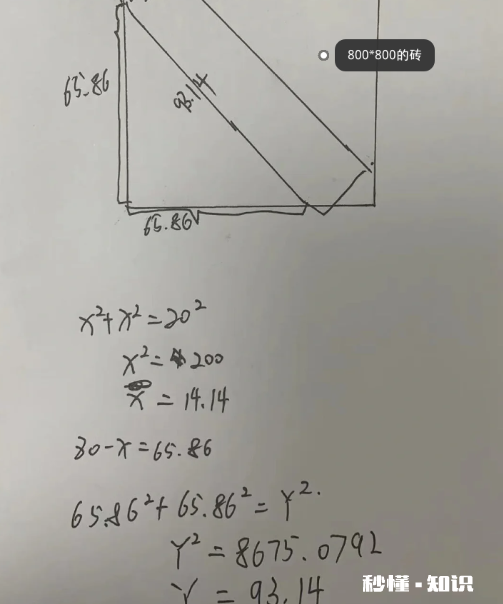 800*800的砖
65.86
93.14
65.86
x²+x²=20²
x²=200
x=14.14
80-x=65.86
65.86²+65.86²=Y².
Y²=8675.0792
Y=93.14
秒懂·知识